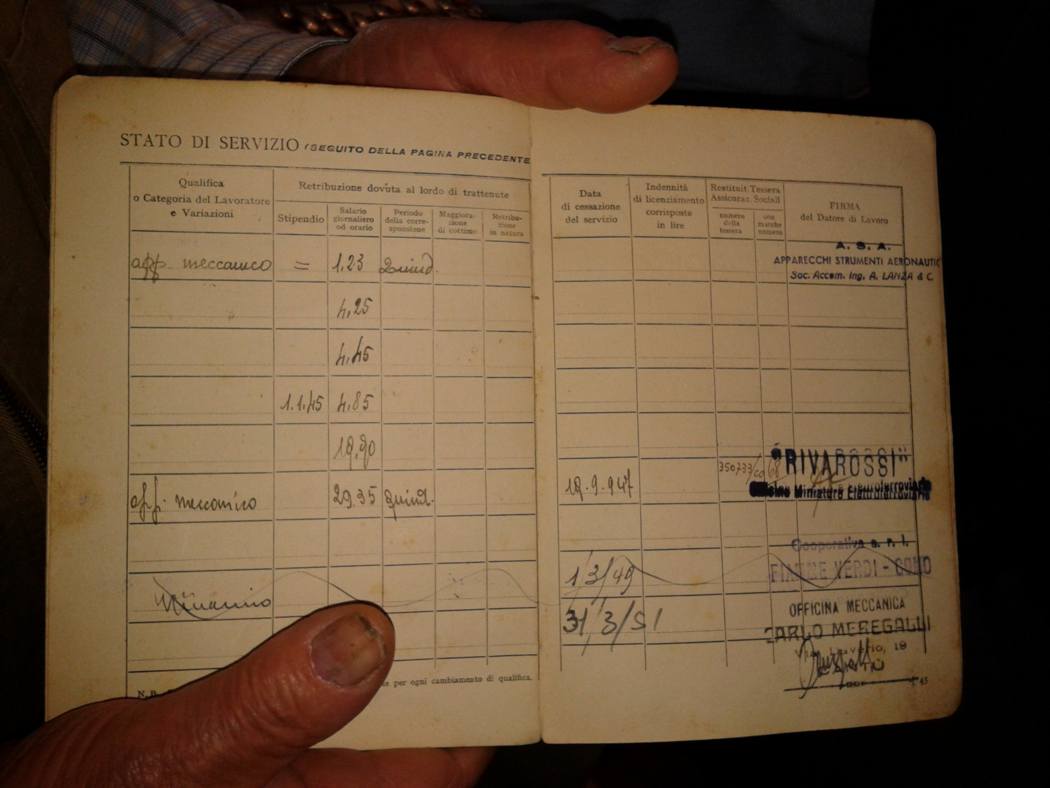 STATO DI SERVIZIO (SEGUITO DELLA PAGINA PRECEDENTE
Qualifica
o Categoria del Lavoratore
e Variazioni
Retribuzione dovuta al lordo di trattenute
Stipendio
Salario
giornaliero
od orario
Periodo
della corre-
sponsione
Maggiora-
zione
di cottimo
Retribu-
zione
in natura
app. meccanico = 1.23 Quind.
4,25
4,45
1.1.45 4.85
19,90
app. meccanico 29.35 Quind.
N.B.
per ogni cambiamento di qualifica.
Data
di cessazione
del servizio
Indennità
di licenziamento
corrisposte
in lire
Restituit. Tessera
Assicuraz. Sociali
numero
della
tessera
con
marche
numero
FIRMA
del Datore di Lavoro
A. S. A.
APPARECCHI STRUMENTI AERONAUTIC
Soc. Accom. Ing. A. LANZA & C.
19.9.947
"RIVAROSSI"
Officine Miniature Elettroferroviarie
Cooperativa a. r. l.
FIAMME VERDI - COMO
1/3/49
31/3/51
OFFICINA MECCANICA
CARLO MEREGALLI
19
CANTÙ